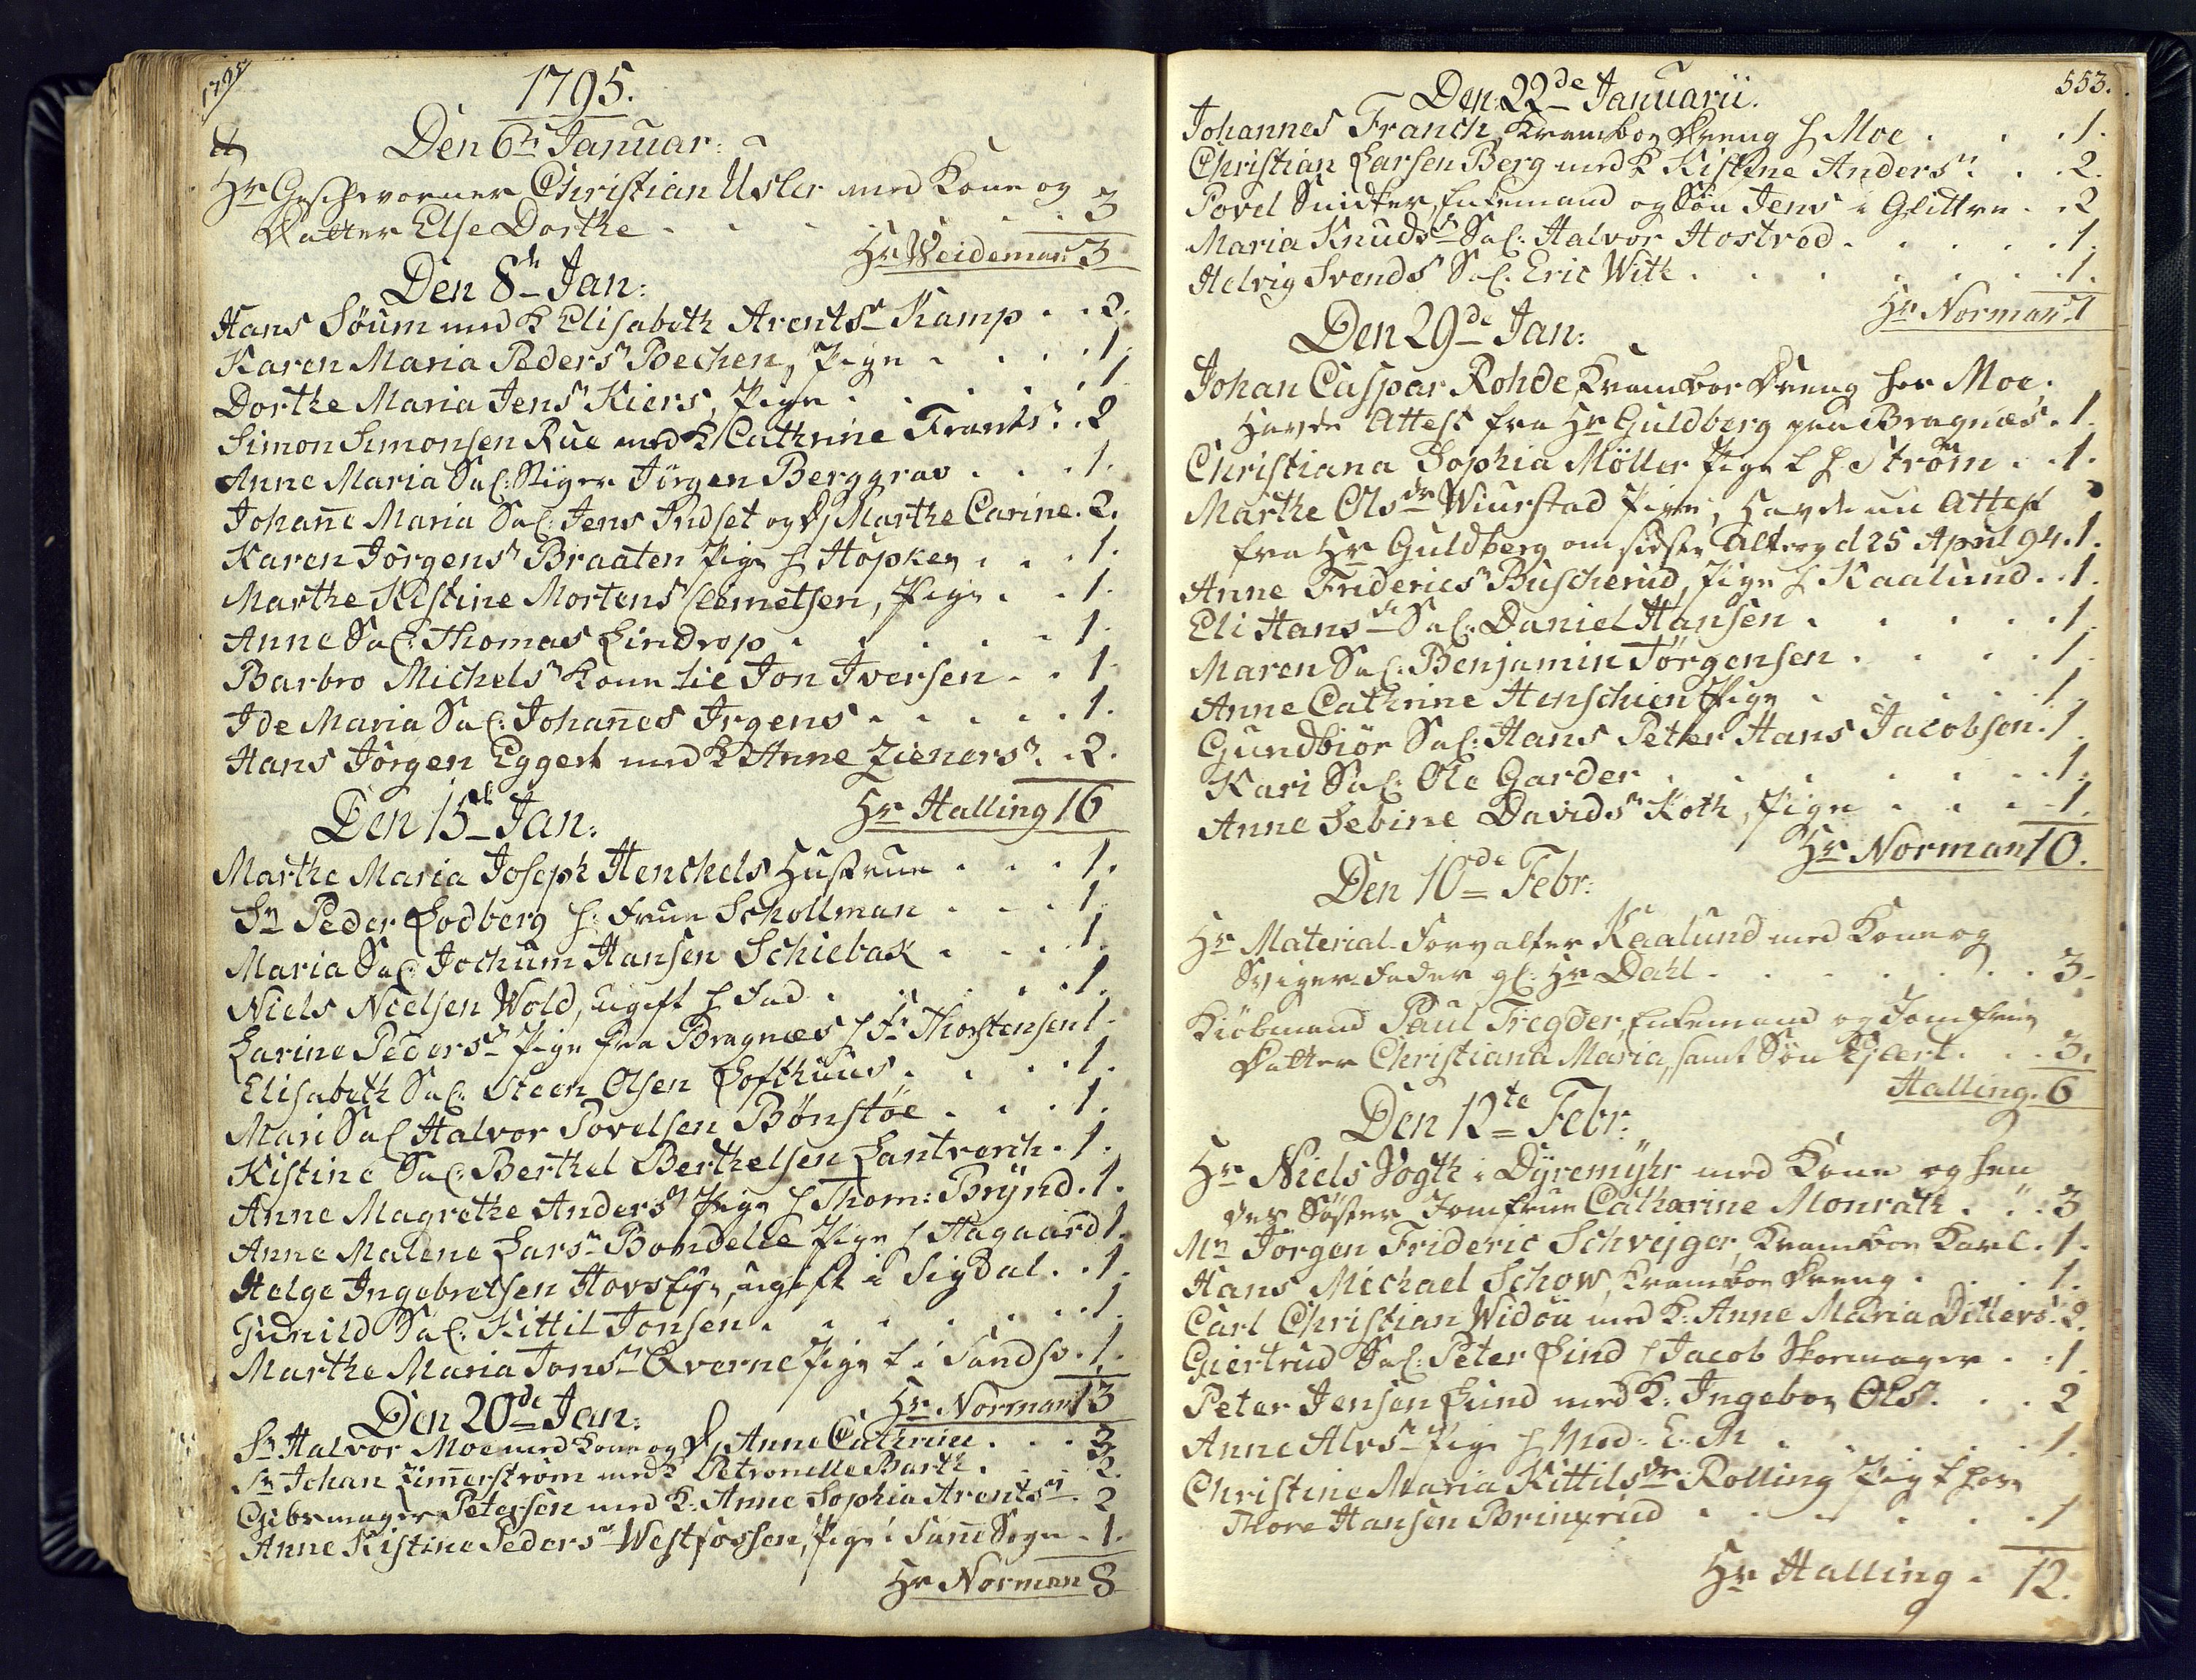 1795
1795.
Den 6te Januar:
Hr Geschworner Christian Usler med Kone og
Datter Else Dorthe . . . . 3
Hr Weideman 3
Den 8de Jan:
Hans Söum med K Elisabeth Arentsr Kamp . . 2.
Karen Maria Pedersr Bechen, Pige . . . . 1.
Dorthe Maria Jensr Kiers, Pige . . . . 1
Simon Simonsen Rue med K Cathrine Frantsr . . 2
Anne Maria Sal: Stiger Jörgen Berggrav . . . 1.
Johañe Maria Sal: Jens Indset og D Marthe Carine . 2.
Karen Jörgensr Braaten Pige h Höpken . . . 1.
Marthe Kistine Mortensr Clemetsen, Pige . . 1.
Anne Sal: Thomas Lindrop . . . . 1.
Barbro Michelsr Kone til Jon Iversen . . 1.
Ide Maria Sal: Johañes Irgens . . . . . 1.
Hans Jörgen Eggert med K Anne Zienersr . . 2.
Hr Halling 16
Den 15de Jan:
Marthe Maria Joseph Henchels Hustrue . . . 1.
Sr Peder Lodberg h: Frue Schollman . . . 1.
Maria Sal: Jochum Hansen Schiebak . . . 1.
Niels Nielsen Wold, ugift h Fad . . . . . 1.
Larine Pedersr Pige fra Bragnæs h Fr Thorstensen 1.
Elisabeth Sal: Steen Olsen Lofthuus . . . . 1.
Mari Sal Halvor Povelsen Bönstöe . . . 1.
Kistine Sal: Berthel Berthelsen Lantverch . 1.
Anne Magrethe Andersr Pige h Thom: Brÿnd . 1.
Anne Malene Larsr Bondelie Pige h Hagaard 1.
Helge Ingebretsen Hovseje, ugift i Sigdal . . 1.
Gunild Sal: Kittil Jonsen . . . . . . 1
Marthe Maria Jonsr Qverne Pige t i Sandsv. 1.
Hr Norman 13
Den 20de Jan:
Sr Halvor Moe med Kone og D Anne Cathrine . . . 3
Sr Johan Zim̃erström med K Petronelle Barth . . . 2.
Gibsmager Petersen med K. Anne Sophia Arentsr . 2
Anne Kistine Pedersr Westfossen, Pige i Sam̃e Sogn . 1.
Hr Norman 8
553.
Den 22de Januarii.
Johannes Franch, Krambod Dreng h Moe . . . 1.
Christian Larsen Berg med K Kistine Andersr . . 2.
Povel Snidker, Enkemand og Sön Jens i Glittre . . 2
Maria Knudsr Sal: Halvor Hostved . . . . . 1.
Helvig Svends Sal: Eric With . . . . . . 1.
Hr Norman 7
Den 29de Jan:
Johan Caspar Rohde Krambod Dreng hos Moe,
Havde Attest fra Hr Guldberg paa Bragnæs . 1.
Christiana Sophia Möller Pige t h Ström . . 1.
Marthe Olsdr Wiurstad Pige, havde en Attest
fra Hr Guldberg om sidste Alterg d 25 April 94 . 1.
Anne Fridericsr Buscherud, Pige h Kaalund . . 1.
Eli Hansdr Sal: Daniel Hansen . . . . . 1.
Maren Sal: Benjamin Jörgensen . . . . 1.
Anne Cathrine Henschien Pige . . . . . 1.
Gundbiör Sal: Hans Petter Hans Jacobsen . 1.
Kari Sal: Ole Garder . . . . . . . 1.
Anne Sebine Davidsr Koth, Pige . . . . 1.
Hr Norman 10.
Den 10de Febr:
Hr Material-Forvalter Kaalund med Kone og
Sviger-Fader gl: Hr Dahl . . . . . . . 3.
Kiöbmand Paul Tregder, Enkemand og Jomfrue
Datter Christiana Maria, samt Sön Eilert . . . 3.
Halling . 6
Den 12te Febr:
Hr Niels Vogth i Dÿremÿhr med Kone og hen
des Söster Jomfrue Catharine Monrath . . . 3
Mr Jörgen Frideric Schvejger, Krambod Karl . 1.
Hans Michael Schow, Krambod Dreng . . . 1.
Carl Christian Widöu med K. Anne Maria Ditlevsr . 2.
Giertrud Sal: Peter Lind h Jacob Skomager . . 1
Peter Jensen Lund med K. Ingebor Olsr . . . 2
Anne Alvsr Pige h Mad: E. M . . . . . 1.
Christine Maria Kittilsdr Rolling Pige t hos
Thore Hansen Brinxrud . . . . . . 1
Hr Halling . 12.